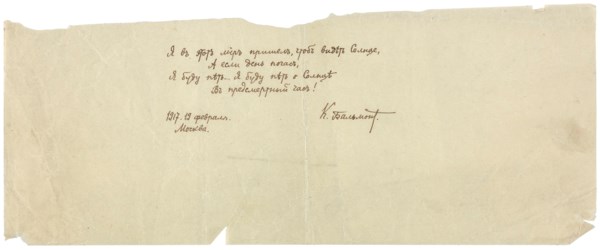 Я въ этотъ мiръ пришелъ, чтобъ видѣть Солнце,
А если день погасъ,
Я буду пѣть... Я буду пѣть о Солнцѣ
Въ предсмертный часъ!
1917. 19 февраля.
Москва.
К. Бальмонт.